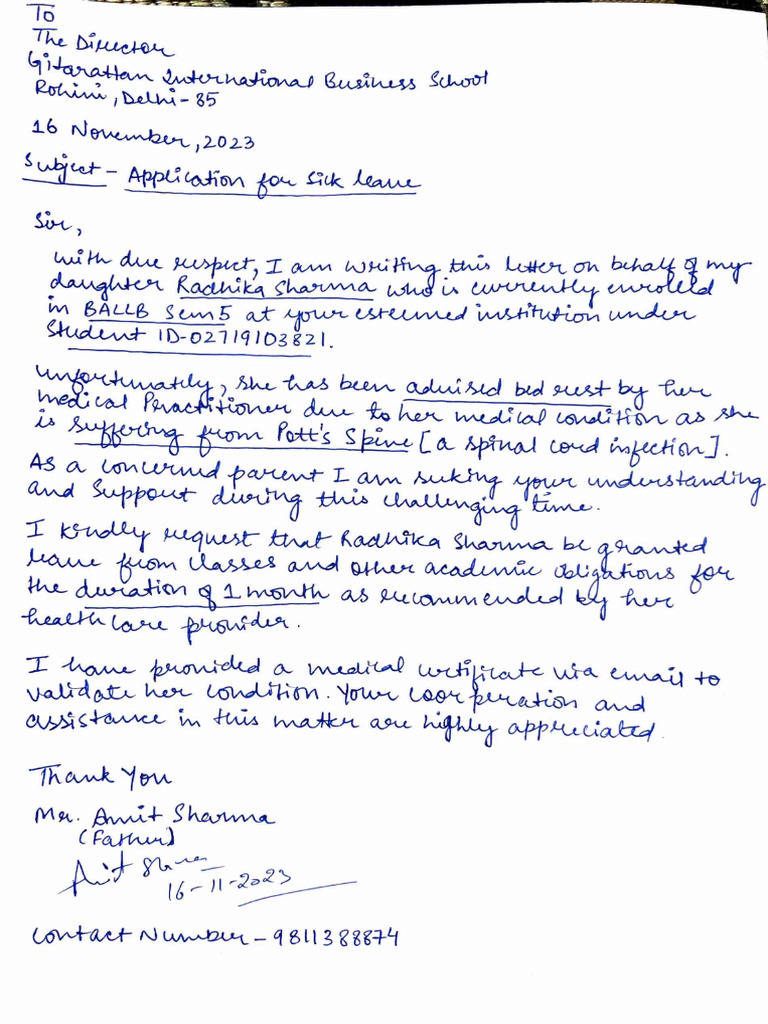 To
The Director
Gitarattan International Business School
Rohini, Delhi-85
16 November, 2023
Subject - Application for Sick leave
Sir,
With due respect, I am writing this letter on behalf of my
daughter Radhika Sharma who is currently enrolled
in BALLB Sem 5 at your esteemed institution under
Student ID-02719103821.
Unfortunately, she has been advised bed rest by her
medical Practitioner due to her medical condition as she
is suffering from Pott's Spine [a spinal cord infection].
As a concerned parent I am seeking your understanding
and support during this challenging time.
I kindly request that Radhika Sharma be granted
leave from classes and other academic obligations for
the duration of 1 month as recommended by her
health care provider.
I have provided a medical certificate via email to
validate her condition. Your coorperation and
assistance in this matter are highly appreciated.
Thank You
Mr. Amit Sharma
(Father)
Amit Sharma
16-11-2023
Contact Number - 9811388874